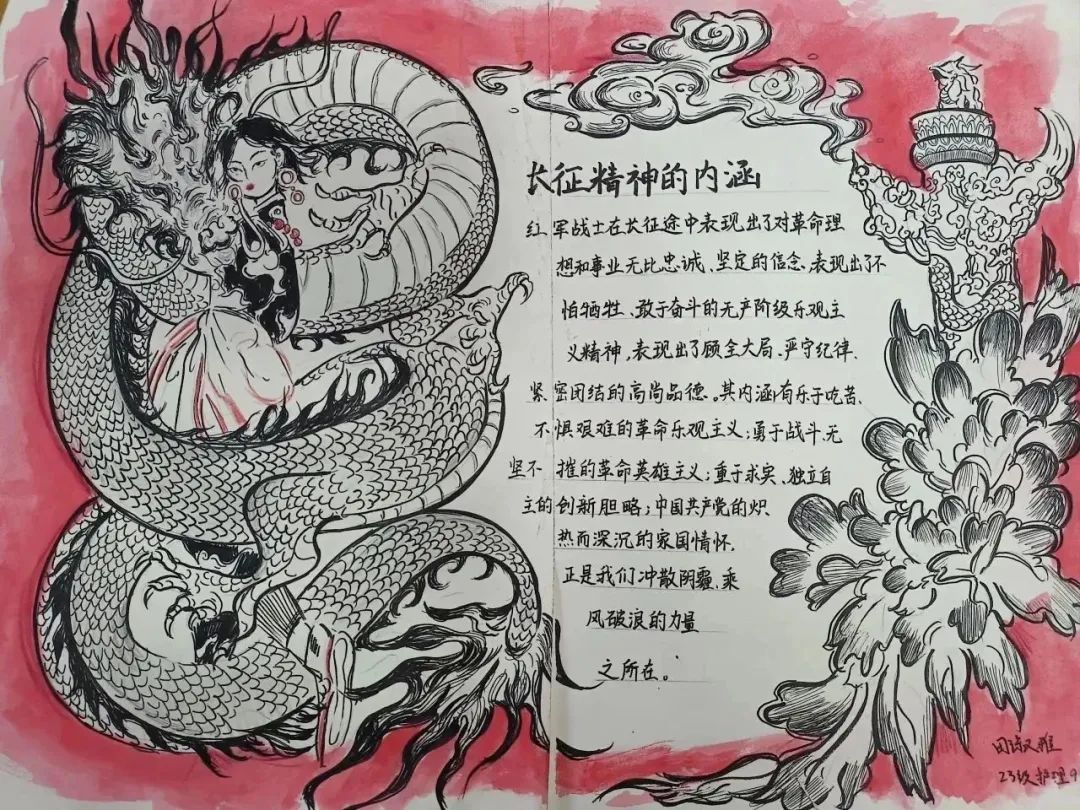 长征精神的内涵
红军战士在长征途中表现出了对革命理
想和事业无比忠诚、坚定的信念,表现出了不
怕牺牲、敢于奋斗的无产阶级乐观主
义精神,表现出了顾全大局、严守纪律、
紧密团结的高尚品德。其内涵有乐于吃苦、
不惧艰难的革命乐观主义;勇于战斗、无
坚不摧的革命英雄主义;重于求实、独立自
主的创新胆略;中国共产党的炽
热而深沉的家国情怀.
正是我们冲散阴霾、乘
风破浪的力量
之所在。
23级护理9